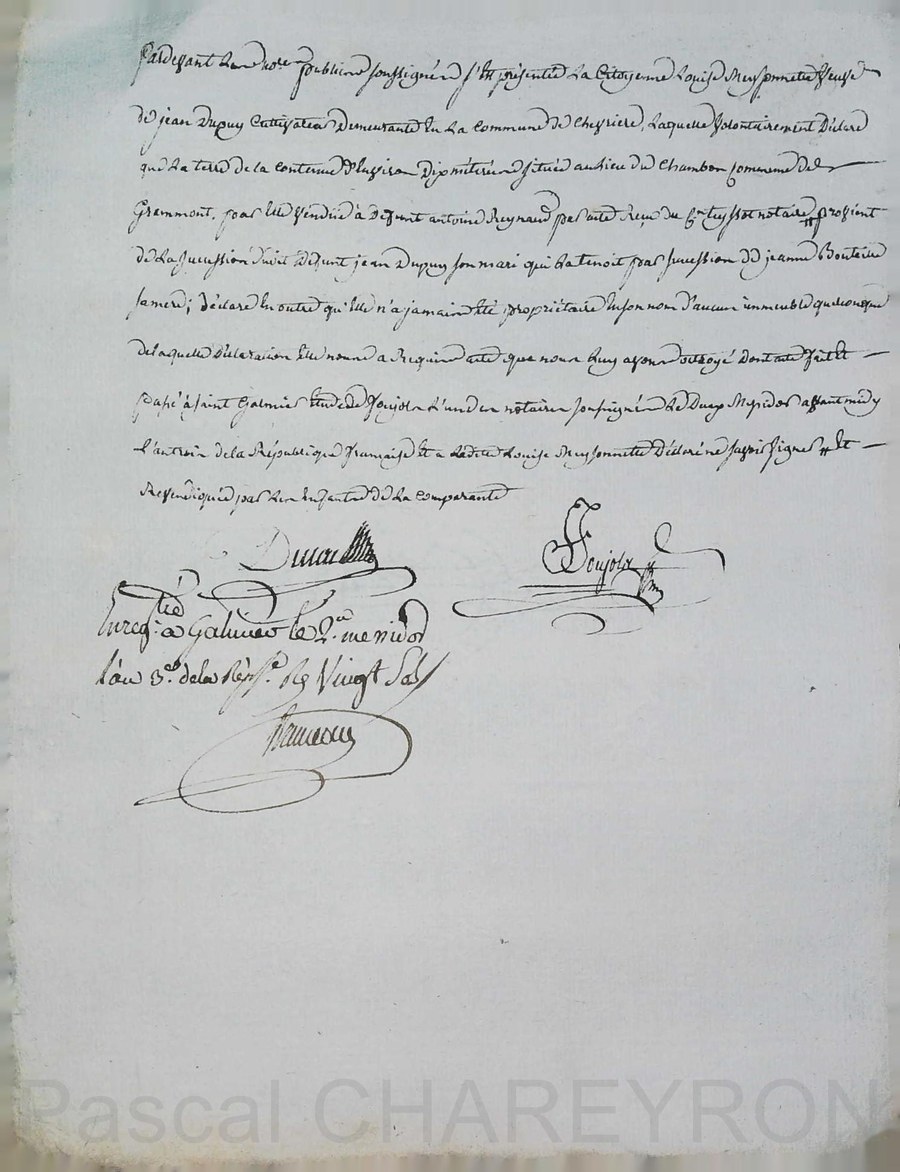 Pardevant Les not.res publics soussignés s'Est présentée La Citoyenne Louise Meyssonnete Veuve
de jean Dupuy Cultivateur Demeurante En La Commune de Chevriere, Laquelle Volontairement Déclare
que La terre de la contenue d'Environ Dix méterées située au lieu du Chambon Commune de
Grammont, par Elle Vendüe à Défunt antoine Reynaud par acte Reçu du C.en teyssot notaire # provient
de La succession dudit défunt jean Dupuy son mari qui La tenoit par succession de jeanne Bouterie
sa mere; Déclare En outre qu'Elle n'a jamais Eté propriétaire En son nom d'aucun immeuble quelconque
de laquelle Déclaration Elle nous a Requis acte que nous Luy avons octroyé Dont acte fait Et
passé à saint Galmier Etude de Poujola L'un des notaires soussignés Le Deux Messidor avant midy
l'an trois de la République française Et a Ladite Louise Meyssonnete Déclaré ne savoir signer # Et
Revendiquée par Les Enfants de La Comparante
Poujola
Enreg.tré a Galmier le 2.e messidor
l'an 3.e de la Rép.e Rs Vingt Sols